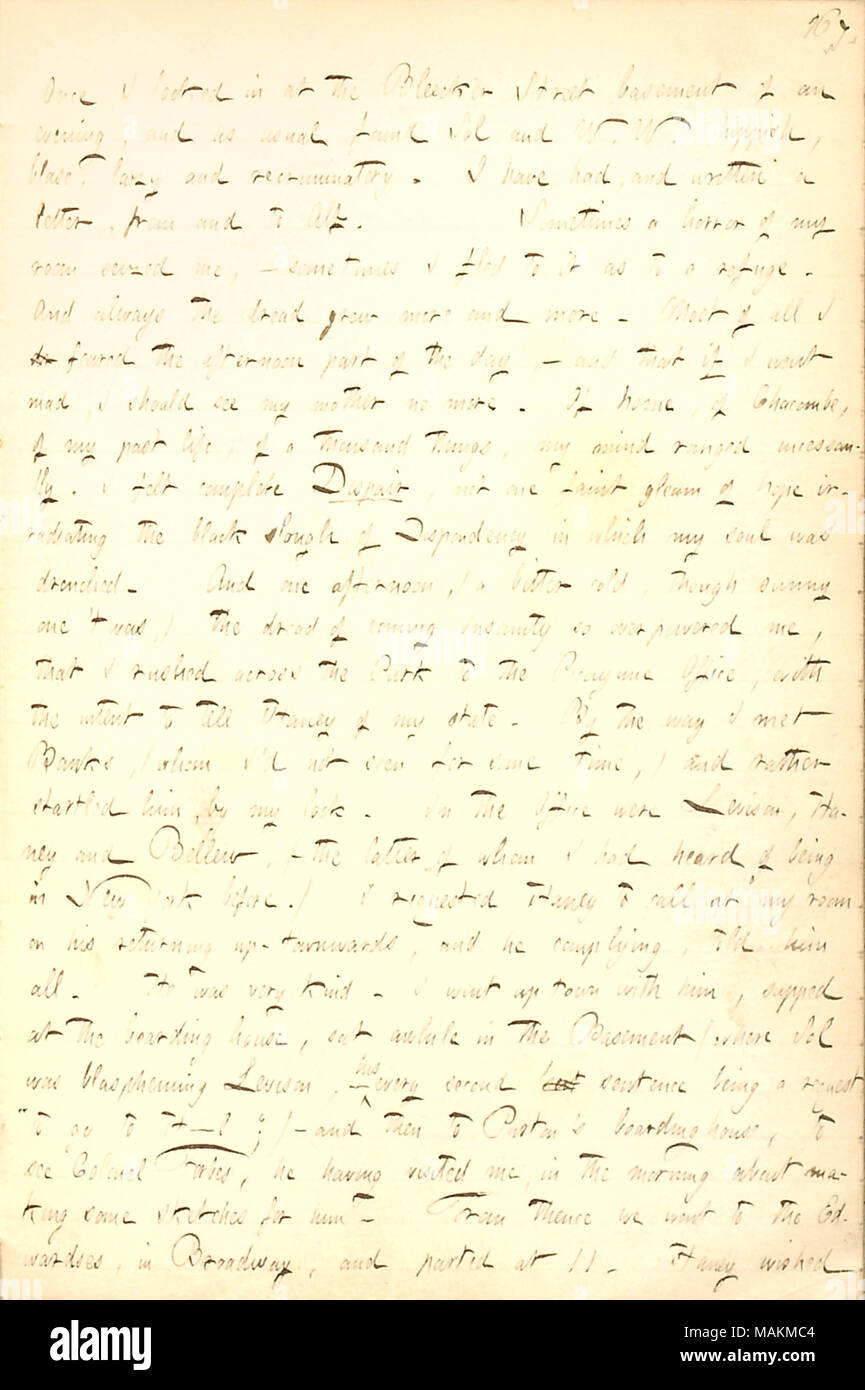 167.
Once I looked in at the Bleecker Street basement of an
evening, and as usual found Sol and W. W.
blasé, lazy and recriminatory. I have had, and written a
letter, from and to Alf. Sometimes a horror of my
room seized me, — sometimes I fled to it as to a refuge.
And always the dread grew more and more. Most of all I
feared the afternoon part of the day, — and that if I went
mad, I should see my mother no more. Of home, of Chacombe,
of my past life, of a thousand things, my mind ranged incessan-
tly. I felt complete Despair, not one faint gleam of hope ir-
radiating the black slough of Despondency in which my soul was
drenched. And one afternoon, (a bitter cold, though sunny
one 'twas,) the dread of coming insanity so overpowered me,
that I rushed across the Park to the Picayune Office, with
the intent to tell Haney of my state. By the way I met
Banks, (whom I'd not seen for some time,) and rather
startled him by my look. In the Office were Levison, Ha-
ney and Bellew, — the latter of whom I had heard of being
in New York before.) I requested Haney to call at my room
on his returning up-townwards, and he complying, told him
all. He was very kind. I went up town with him, supped
at the boarding house, sat awhile in the Basement (where Sol
was blaspheming Levison, — his every second sentence being a request
"to go to H—l";) — and then to Purton's boarding house, to
see Colonel Forbes, he having visited me in the morning about ma-
king some sketches for him. From thence we went to the Ed-
wardses, in Broadway, and parted at 11. Haney wished
alamy
Image ID: MAKMC4
www.alamy.com